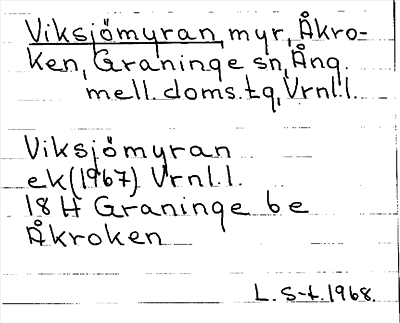 Viksjömyran, myr, Åkro-
ken, Graninge sn, Ång.
mell. doms. tg, Vrnl.l.
Viksjömyran
ek (1967) Vrnl.l.
18 H Graninge 6 e
Åkroken
L. S-t. 1968.